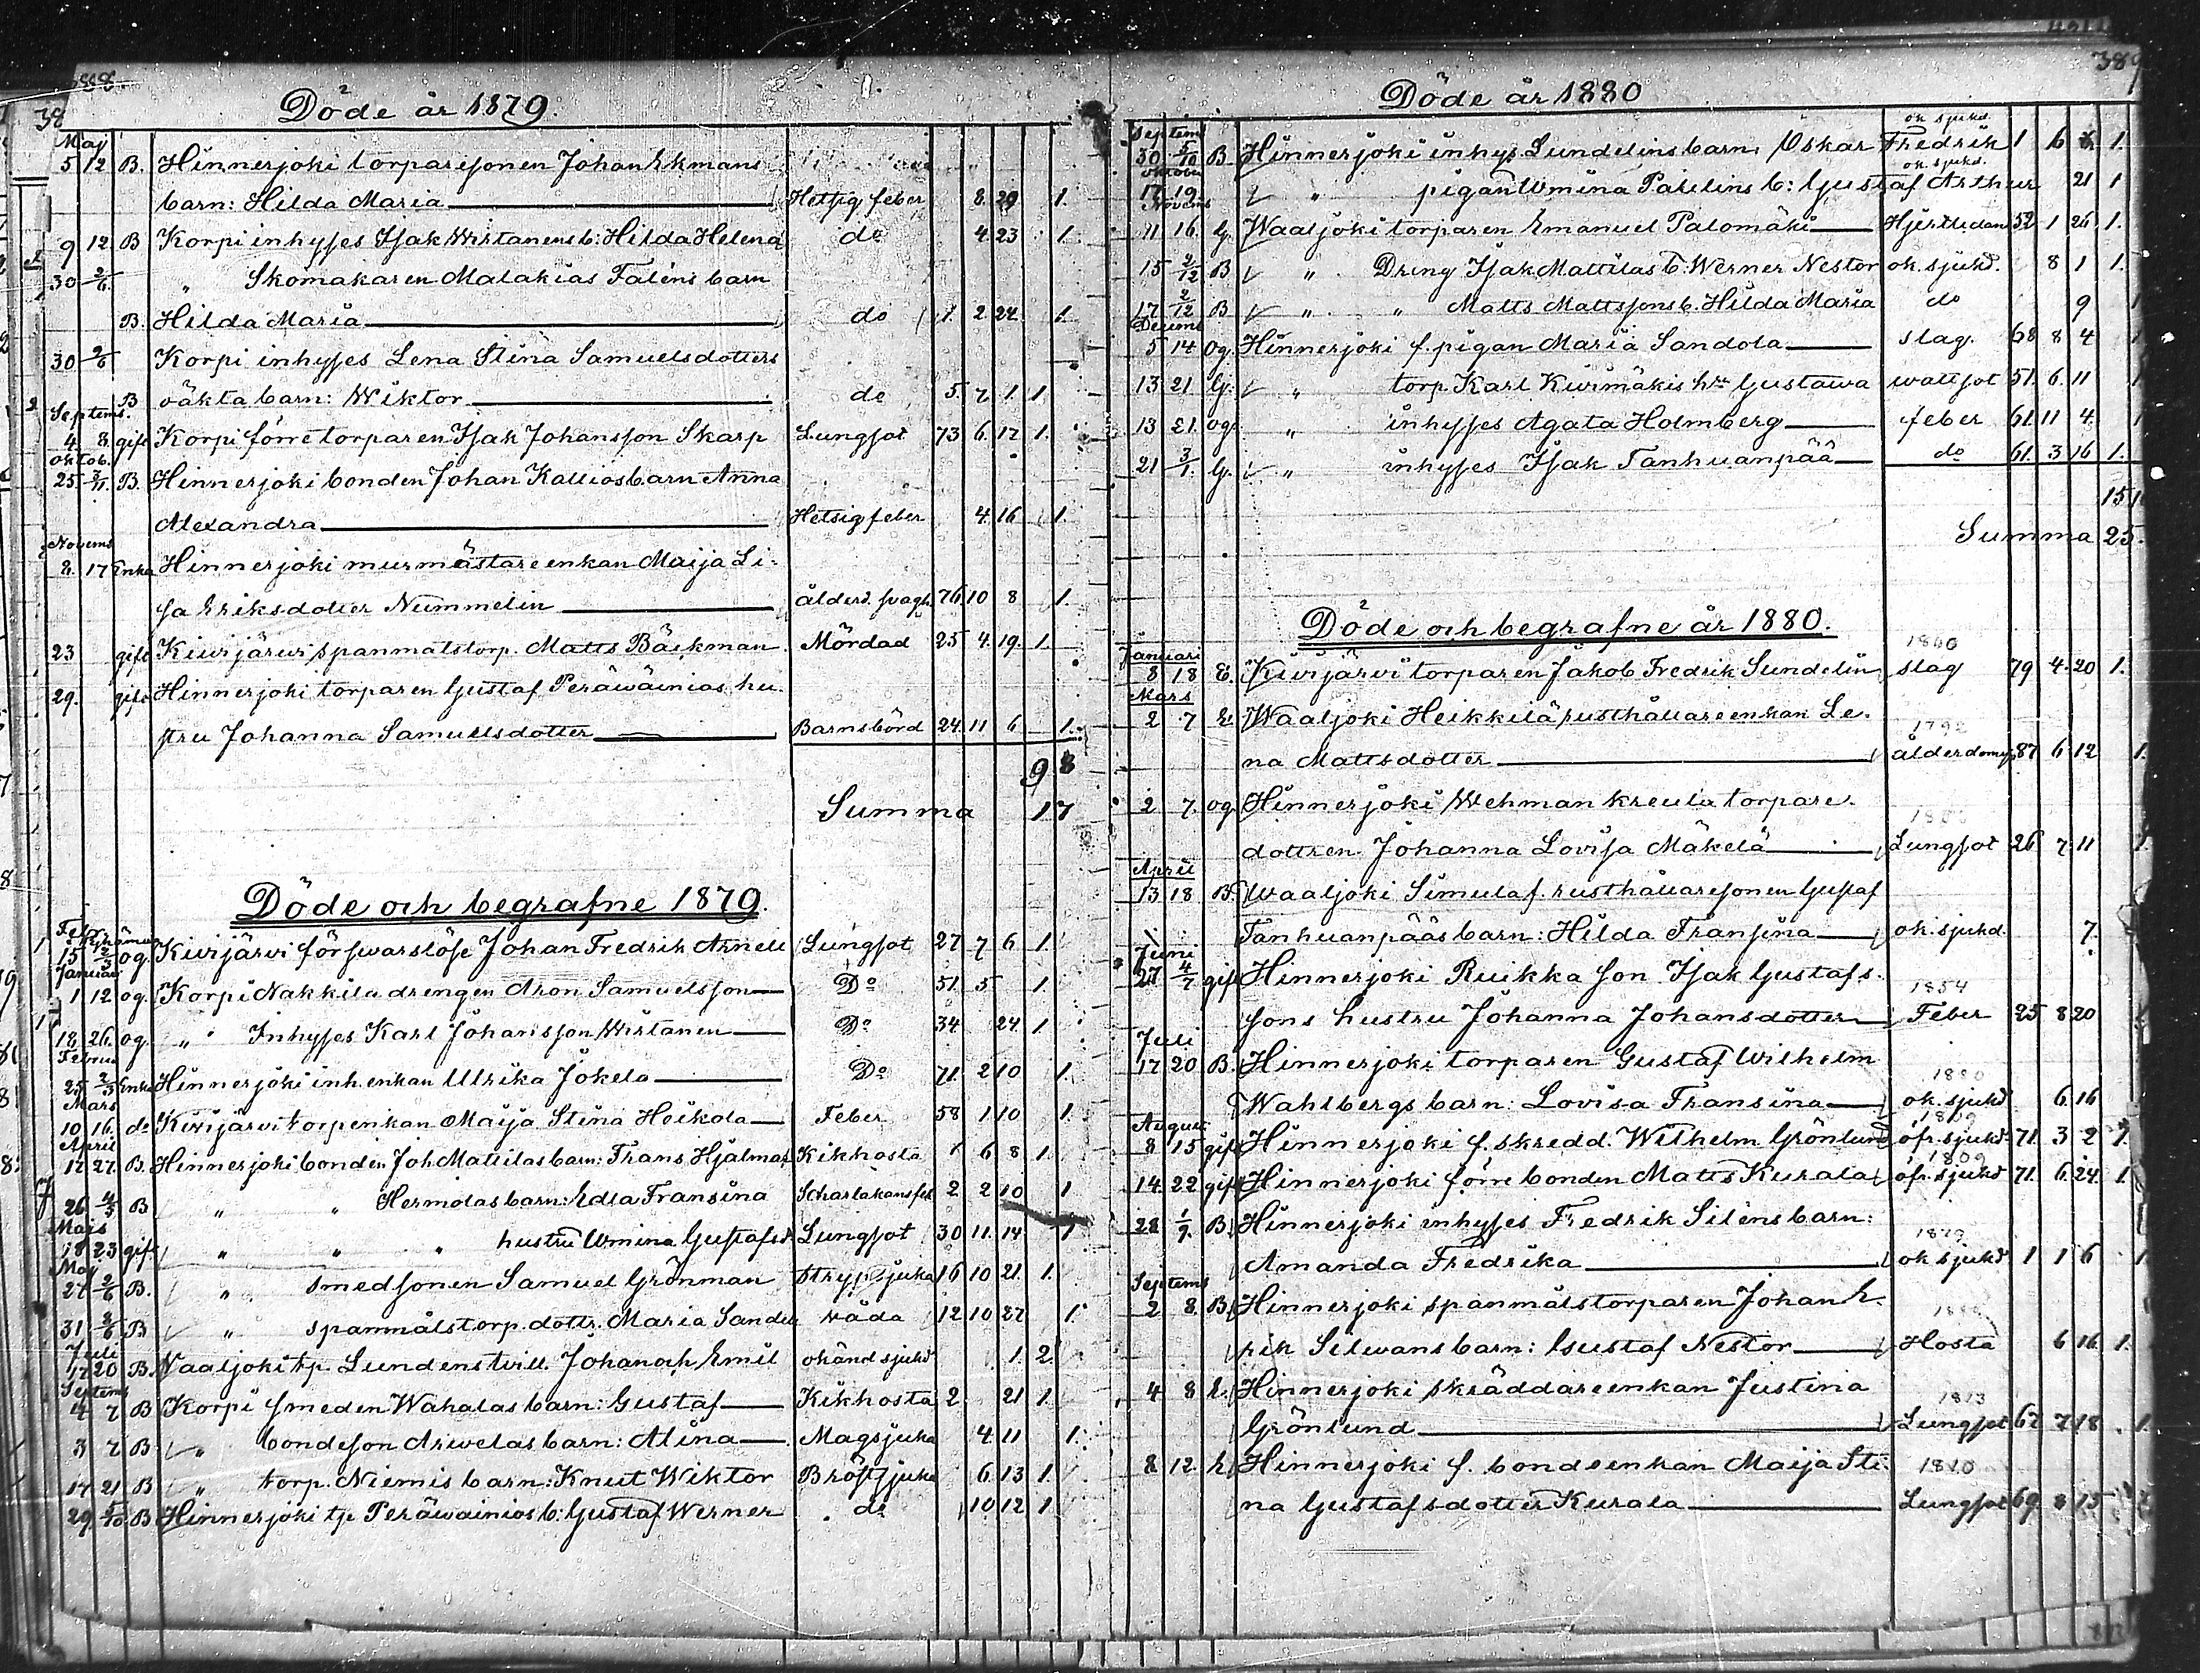 Döde år 1879.
Maj
5 12 B. Hinnerjoki torparesonen Johan Ekmans
barn: Hilda Maria Hetsig feber 8. 29 1.
9 12 B Korpi inhyses Isak Wirtanens b: Hilda Helena do 4. 23 1
30 2/6 " Skomakaren Malakias Taléns barn
B. Hilda Maria do 1 2 24 1.
30 2/6 Korpi inhyses Lena Stina Samuelsdotters
B oäkta barn: Wiktor do 5. 7 1. 1
Septemb.
4 8. gift Korpi förre torparen Isak Johansson Skarp Lungsot 73 6. 17 1.
Oktob.
25 2/11. B. Hinnerjoki bonden Johan Kallios barn Anna
Alexandra Hetsig feber 4. 16 1.
Novemb
8. 17 Enka Hinnerjoki murmästareenkan Maija Li-
sa Eriksdotter Nummelin ålderd. svagh. 76. 10 8 1.
23 gift Kiwijärwi spanmålstorp. Matts Bäckman Mördad 25 4. 19. 1.
29. gift Hinnerjoki torparen Gustaf Peräwainios hu-
stru Johanna Samuelsdotter Barnsbörd 24. 11 6 1.
9 8
Summa 17
Döde och begrafne 1879.
15 2/3 og. Kiwijärwi förswarslöse Johan Fredrik Arnell Lungsot 27 7 6 1.
Januari
1 12 og. Korpi Nakkila drengen Aron Samuelsson Do 51. 5 1.
18 26. og. " Inhyses Karl Johansson Wirtanen Do 34 24 1
Februa
25 2/3 Enka Hinnerjoki inh. enkan Ulrika Jokela Do 71. 2 10 1.
Mars
10 16. do Kiwijärwi torpenkan Maija Stina Heikola Feber 58 1 10 1.
April
17 27. B. Hinnerjoki bonden Joh. Mattilas barn: Frans Hjalmar Kikhosta 1 6 8 1.
26 4/5 B " " Hermolas barn: Edla Fransina Scharlakansfeb 2 2 10 1
Majs
18 23 gift " " " hustru Wmina Gustafsd. Lungsot 30 11. 14 1
Maj
27 2/6 B. " smedsonen Samuel Grönman Strypsjuka 16 10 21. 1.
31 2/6 B " spanmålstorp. dottr. Maria Sandel wåda 12 10 27 1.
Juli
17 20 B. Waaljoki trp. Lundens twill. Johan och Emil okänd sjukd 1. 2.
Septemb
4 7 B Korpi smeden Wahalas barn: Gustaf Kikhosta 2 21 1.
3 7 B " bondeson Arwelas barn: Alina Magsjuka 4. 11 1.
14 21 B " torp. Niemis barn: Knut Wiktor Bröstsjuka 6. 13 1.
29 5/10 B Hinnerjoki tp Peräwainios b: Gustaf Werner do 10. 12 1
389
Döde år 1880
Septemb ok. sjukd.
30 5/10 B Hinnerjoki inhys. Lundelins barn, Oskar Fredrik 1 6 1.
Oktober ok. sjukd.
17 19 " pigan Wmina Paulins b: Gustaf Arthur 21 1
Novemb
11 16. G. Waaljoki torparen Emanuel Palomäki Hjertlidan 52 1 26. 1.
15 2/12 B " Dreng Isak Mattilas b: Werner Nestor ok. sjukd. 8 1 1.
17 2/12 B " " Matts Mattssons b. Hilda Maria do 9 1
Decemb
5 14 Og. Hinnerjoki f. pigan Maria Sandola slag. 68 8 4 1
13 21 G. " torp. Karl Kiwimäkis hru Gustawa wattsot 51. 6. 11 1
13 21. og. " inhyses Agata Holmberg feber 61. 11 4. 1
21 3/1. G. " inhyses Isak Tanhuanpää do 61. 3 16 1.
15
Summa 25.
Döde och begrafne år 1880.
Januari 1800
8 18 E. Kiwijärwi torparen Jakob Fredrik Sundelin slag 79 4. 20 1.
Mars
2 7 E. Waaljoki Heikkilä rusthållareenkan Le- 1792
na Mattsdotter ålderdoms 87 6 12 1.
2 7. og Hinnerjoki Wehmankreula torpare-
dottren Johanna Lovisa Mäkelä Lungsot 26 7 11 1.
April
13 18 B. Waaljoki Simula f. rusthållaresonen Gustaf
Tanhuanpääs barn: Hilda Fransina ok. sjukd. 7.
Juni
27 4/7 gift Hinnerjoki Ruikka son Isak Gustafs- 1854
sons hustru Johanna Johansdotter Feber 25 8 20 1
Juli
17 20 B. Hinnerjoki torparen Gustaf Wilhelm 1880
Wahlbergs barn: Lovisa Fransina ok. sjukd 6 16
Augusti 1809
8 15 gift Hinnerjoki f. skredd. Wilhelm Grönlund öfr. sjukd. 71. 3 2 1.
1809
14 22 gift Hinnerjoki förre bonden Matts Kurala öfr. sjukd 71. 6. 24. 1.
28 1/9. B. Hinnerjoki inhyses Fredrik Siléns barn: 1879
Amanda Fredrika ok. sjukd 1 1 6 1.
Septemb
2 8. B. Hinnerjoki spanmålstorparen Johan E- 1880
rik Silwans barn: Gustaf Nestor Hosta 6 16. 1.
4 8 E. Hinnerjoki skräddareenkan Justina 1813
Grönlund Lungsot 67 7 18. 1.
8 12. E. Hinnerjoki f. bondeenkan Maija Sti- 1810
na Gustafsdotter Kurala Lungsot 69. 8 15